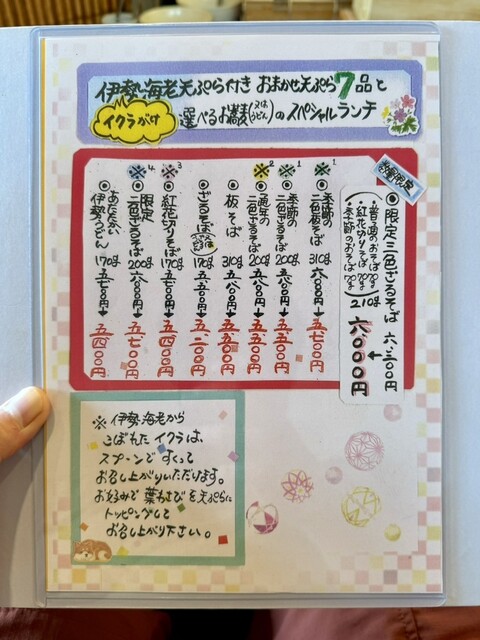 伊勢海老天ぷら付き おまかせ天ぷら7品と
イクラがけ
選べるお蕎麦(又はうどん)のスペシャルランチ
数量限定
◎限定三色ざるそば 六、三〇〇円
普通のおそば70g
紅花切りそば70g
季節のおそば70g
210g
→六、〇〇〇円
※1
◎季節の二色板そば 310g 六、〇〇〇円→五、七〇〇円
※1
◎季節の二色ざるそば 200g 五、八〇〇円→五、五〇〇円
※2
◎通年の二色ざるそば 200g 五、八〇〇円→五、五〇〇円
◎板そば 310g 五、八〇〇円→五、五〇〇円
◎ざるそば 170g 五、五〇〇円→五、二〇〇円
※3
◎紅花切りそば 170g 五、七〇〇円→五、四〇〇円
※4
◎限定二色ざるそば 200g 六、〇〇〇円→五、七〇〇円
◎あたたかい伊勢うどん 170g 五、七〇〇円→五、四〇〇円
※伊勢海老から
こぼれたイクラは、
スプーンですくって
お召し上がりいただけます。
お好みで葉わさびを天ぷらに
トッピングして
お召し上がり下さい。